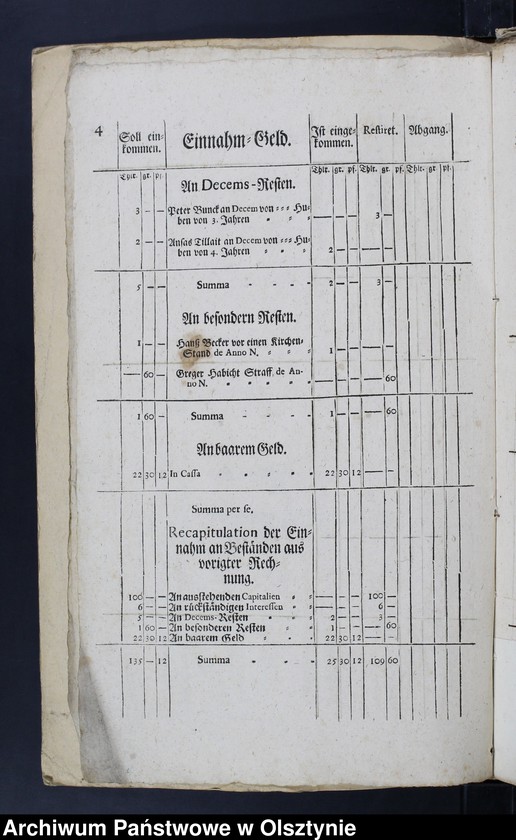 4 Soll ein- Einnahm-Geld. Ist einge- Restiret. Abgang.
kommen. kommen.
Thlr. gr. pf. Thlr. gr. pf. Thlr. gr. pf. Thlr. gr. pf.
An Decems-Resten.
Peter Bunck an Decem von - - - Hu-
3 — — ben von 3. Jahren — — — 3 —
Ansas Tillait an Decem von - - - Hu-
2 — — ben von 4. Jahren 2 — — — —
5 — — Summa 2 — — 3 —
An besondern Resten.
1 — — Hanß Becker vor einen Kirchen-
Stand de Anno N. 1 — — — —
— 60 — Greger Habicht Straff de An-
no N. — — — — 60
1 60 — Summa 1 — — — 60
An baarem Geld.
22 30 12 In Cassa 22 30 12 — —
Summa per se.
Recapitulation der Ein-
nahm an Beständen aus
voriger Rech-
nung.
100 — — An ausstehenden Capitalien — — — 100 —
6 — — An rückständigen Interessen — — — 6 —
5 — — An Decems-Resten 2 — — 3 —
1 60 — An besonderen Resten 1 — — — 60
22 30 12 An baarem Geld 22 30 12 — —
135 — 12 Summa 25 30 12 109 60
Archiwum Państwowe w Olsztynie